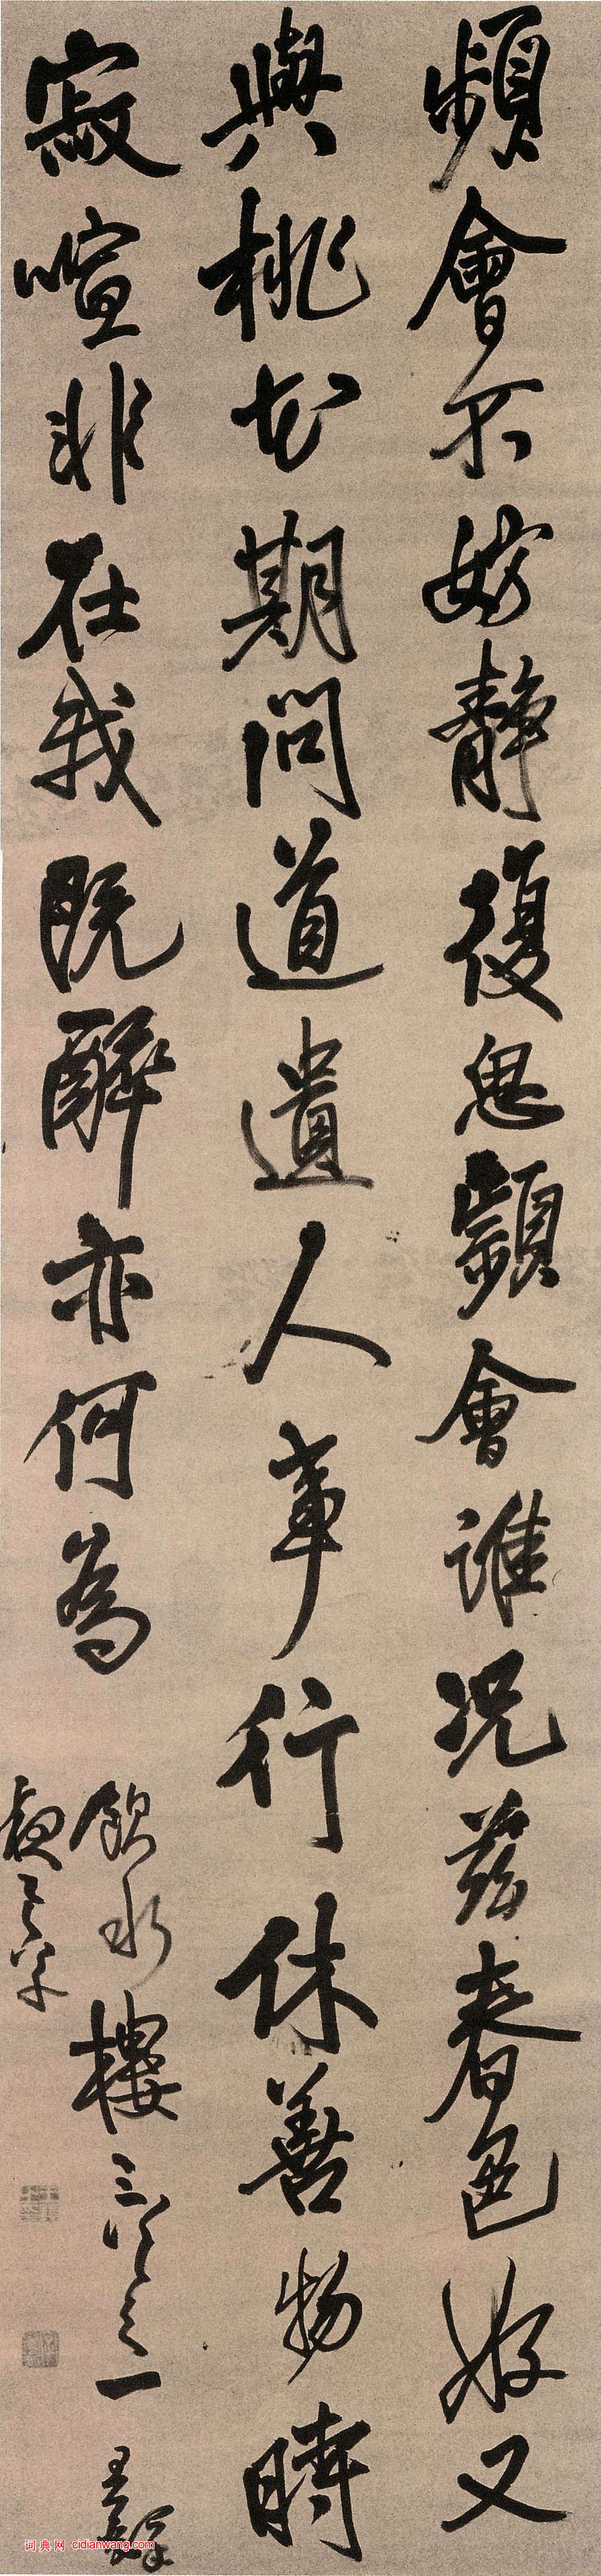 頻會不妨靜復思顯會誰況茲春色好又
與桃花期問道遺人事行休善物時
寂喧非在我既醉亦何為
飲水樓三之一 王鐸
词典网 cidianwang.com